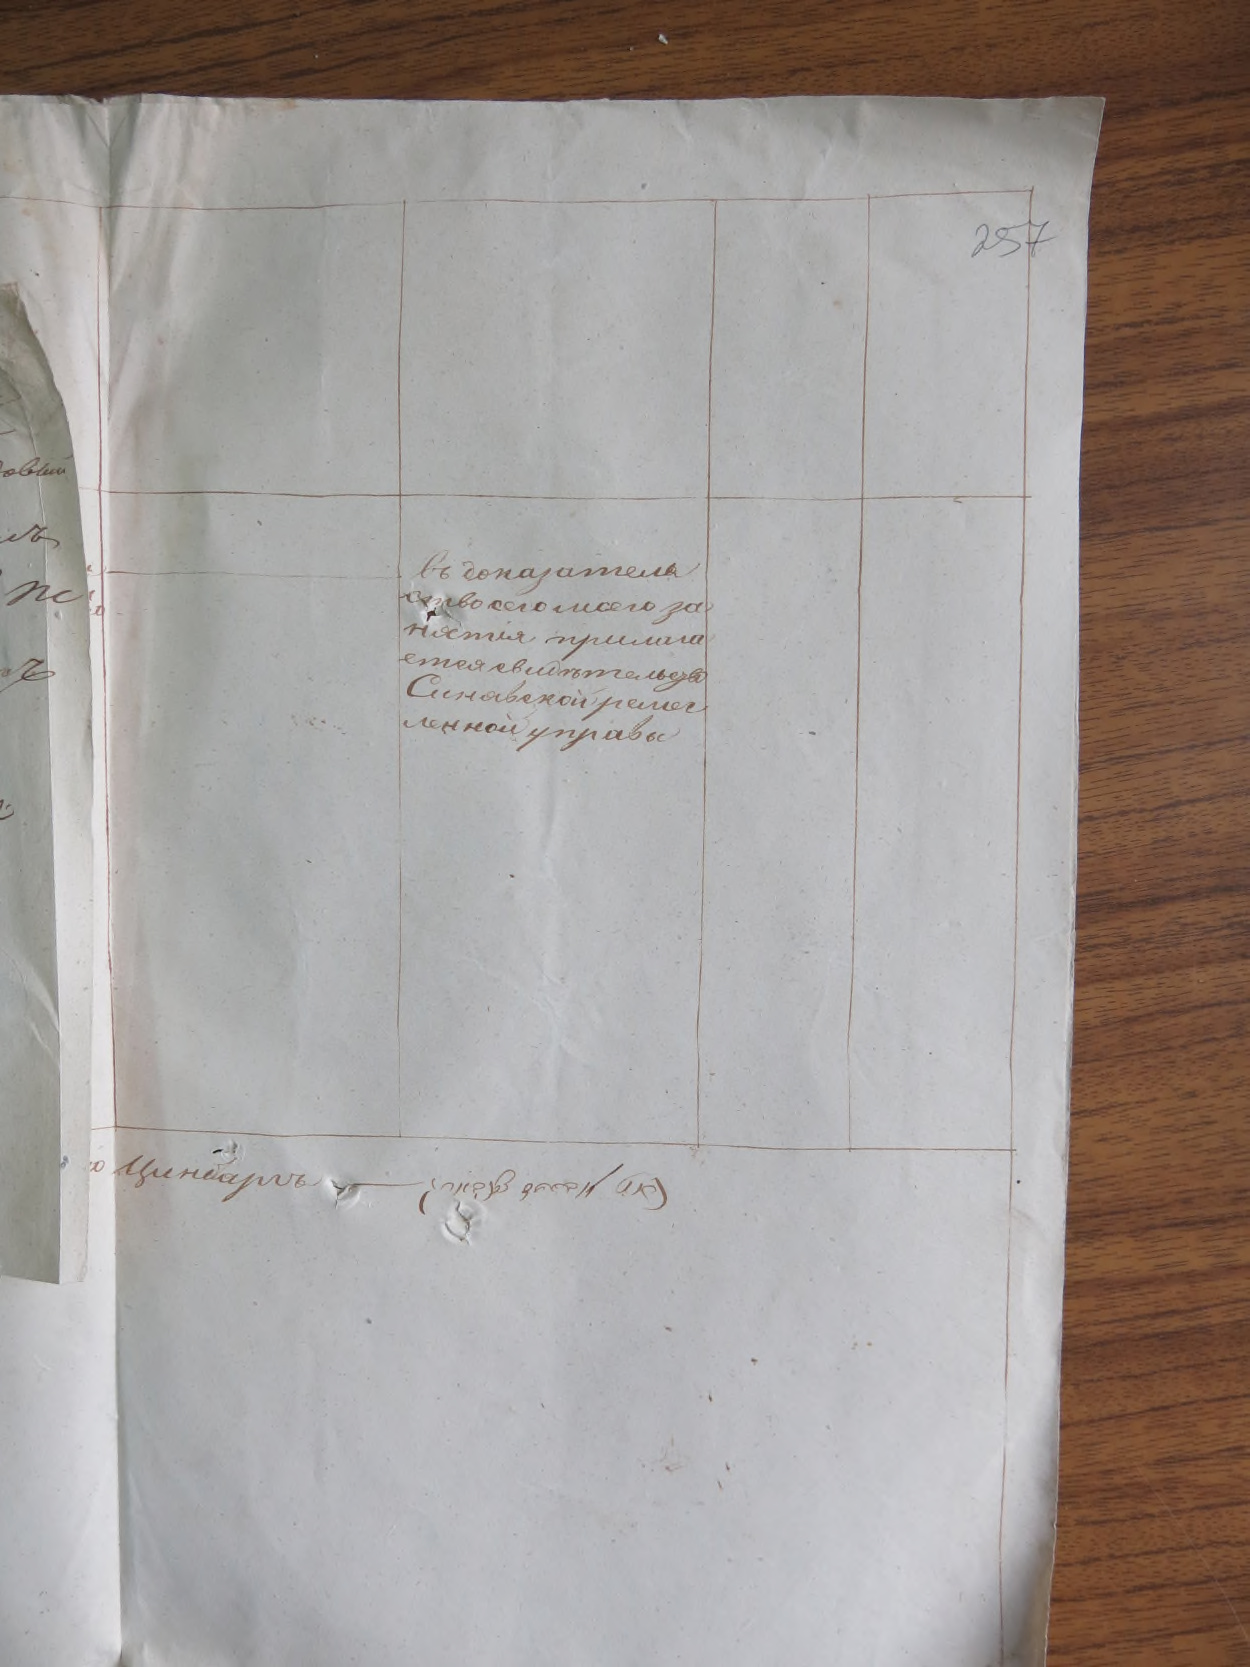 257
въ доказатель
ство сего моего за
нятія прилага
ется свидѣтельство
Синявской ремес
ленной управы
Цинбаргъ